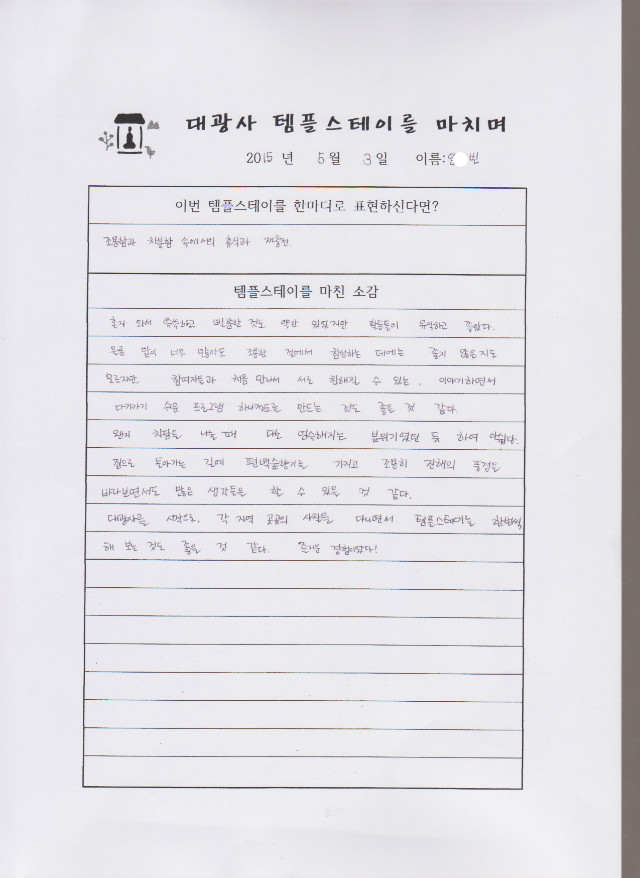 대광사 템플스테이를 마치며
2015 년 5 월 3 일 이름:
이번 템플스테이를 한마디로 표현하신다면?
조용함과 차분함 속에서의 휴식과 재충전.
템플스테이를 마친 소감
혼자 와서 쑥쓰럽고 뻘쭘한 것도 약간 있었지만 활동들이 유익하고 좋았다.
물론 말이 너무 많아도 조용한 절에서 참선하는 데에는 좋지 않은지도
모르지만, 참여자들과 처음 만나서 서로 친해질 수 있는, 이야기하면서
다가가기 쉬운 프로그램 하나정도로 만드는 것도 좋을 것 같다.
왠지 차담을 나눌 때 다소 엄숙해지는 분위기였던 듯 하여 아쉽다.
집으로 돌아가는 길에 편백숲향기로 가지고 조용히 진해의 풍경을
바라보면서도 많은 생각들을 할 수 있을 것 같다.
대광사를 시작으로, 각 지역 곳곳의 사찰을 다니면서 템플스테이를 한번씩
해 보는 것도 좋을 것 같다. 즐거운 경험이었다!